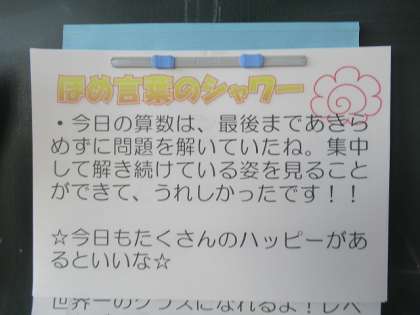 ほめ言葉のシャワー
・今日の算数は、最後まであきら
めずに問題を解いていたね。集中
して解き続けている姿を見ること
ができて、うれしかったです！！
☆今日もたくさんのハッピーがあ
るといいな☆
世界一のクラスになれるよ！レベ